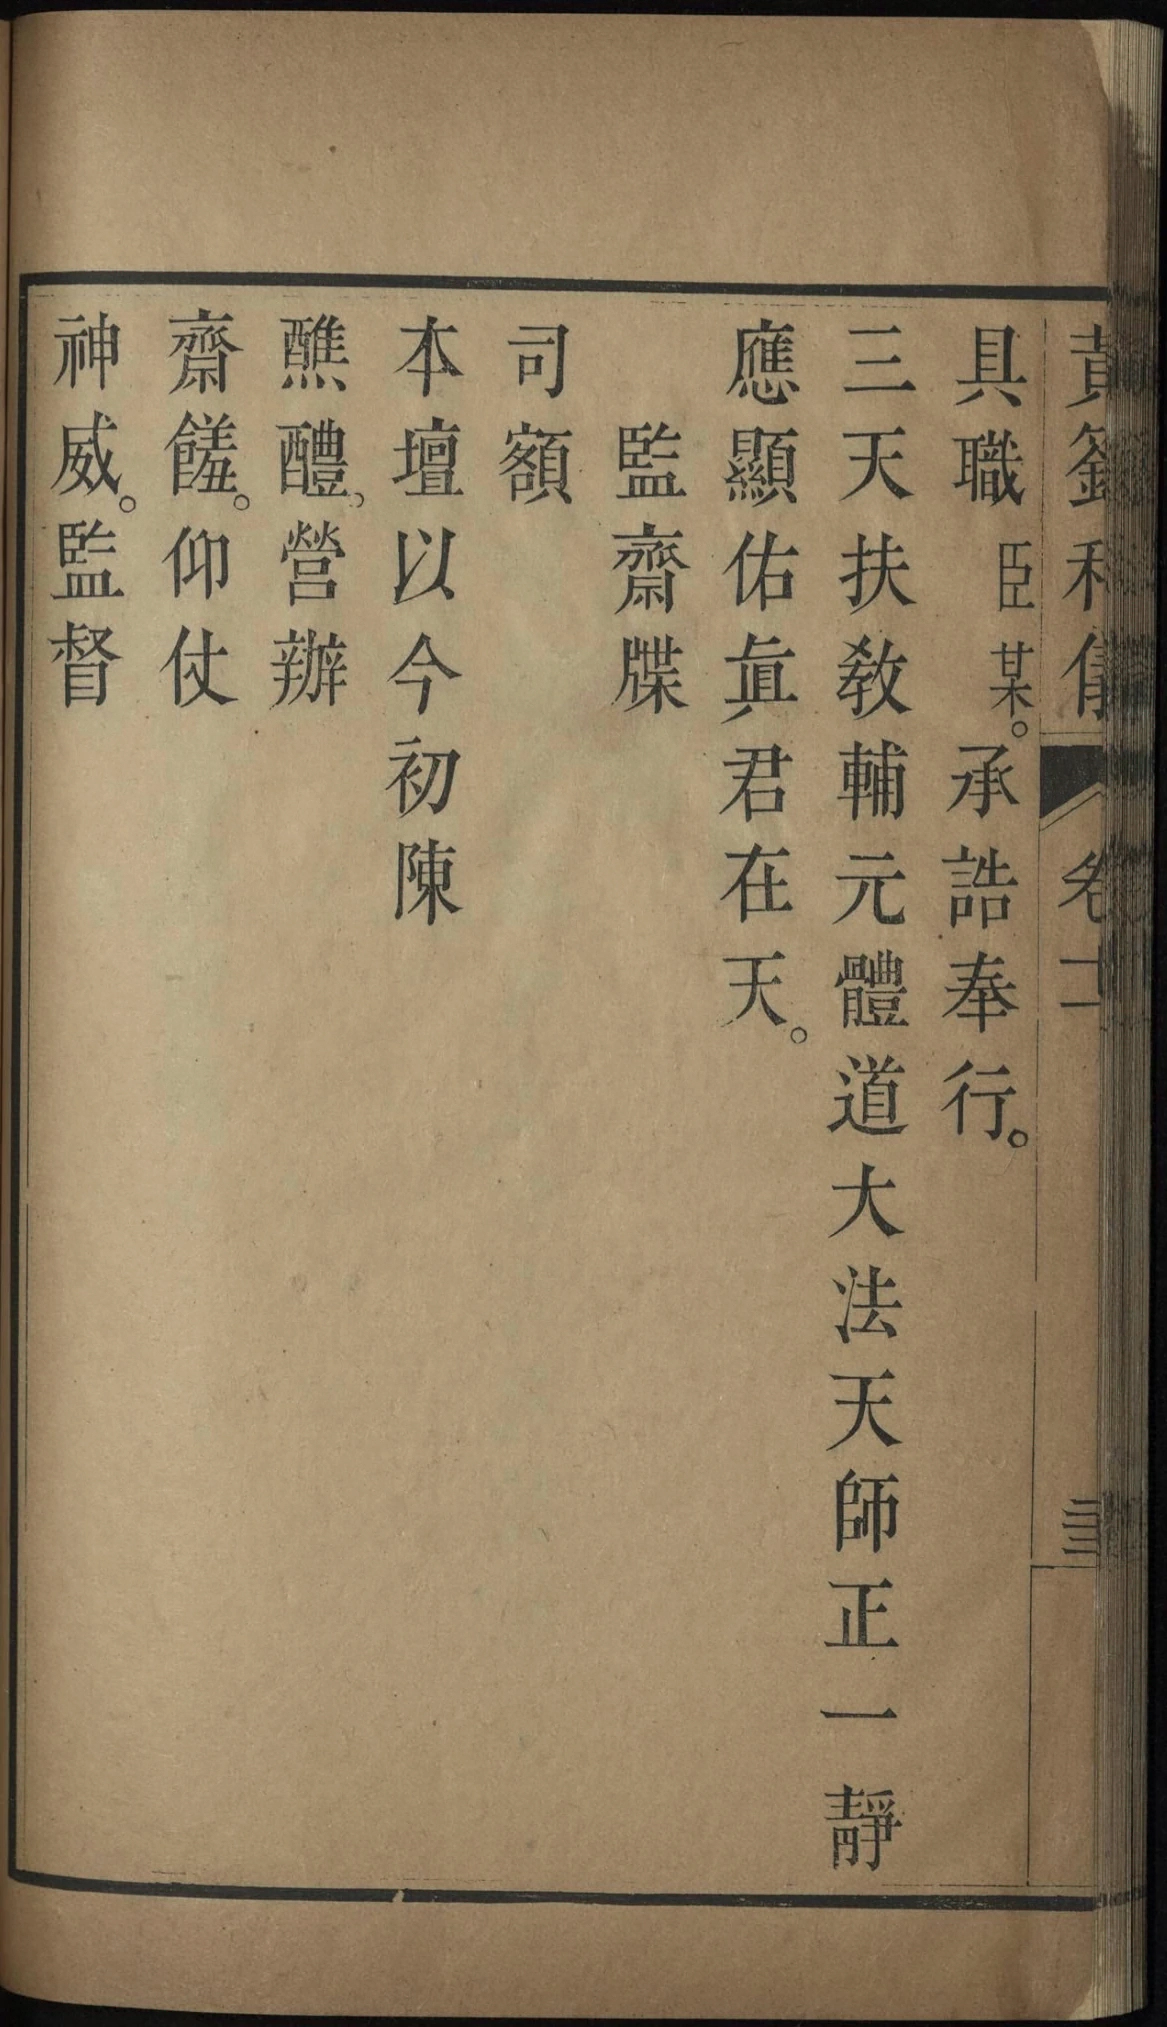 黄籙科儀 卷十二
具職臣某。承誥奉行。
三天扶敎輔元體道大法天師正一靜
應顯佑眞君在天。
監齋牒
司額
本壇以今初陳
醮醴。營辦
齋饈。仰仗
神威。監督